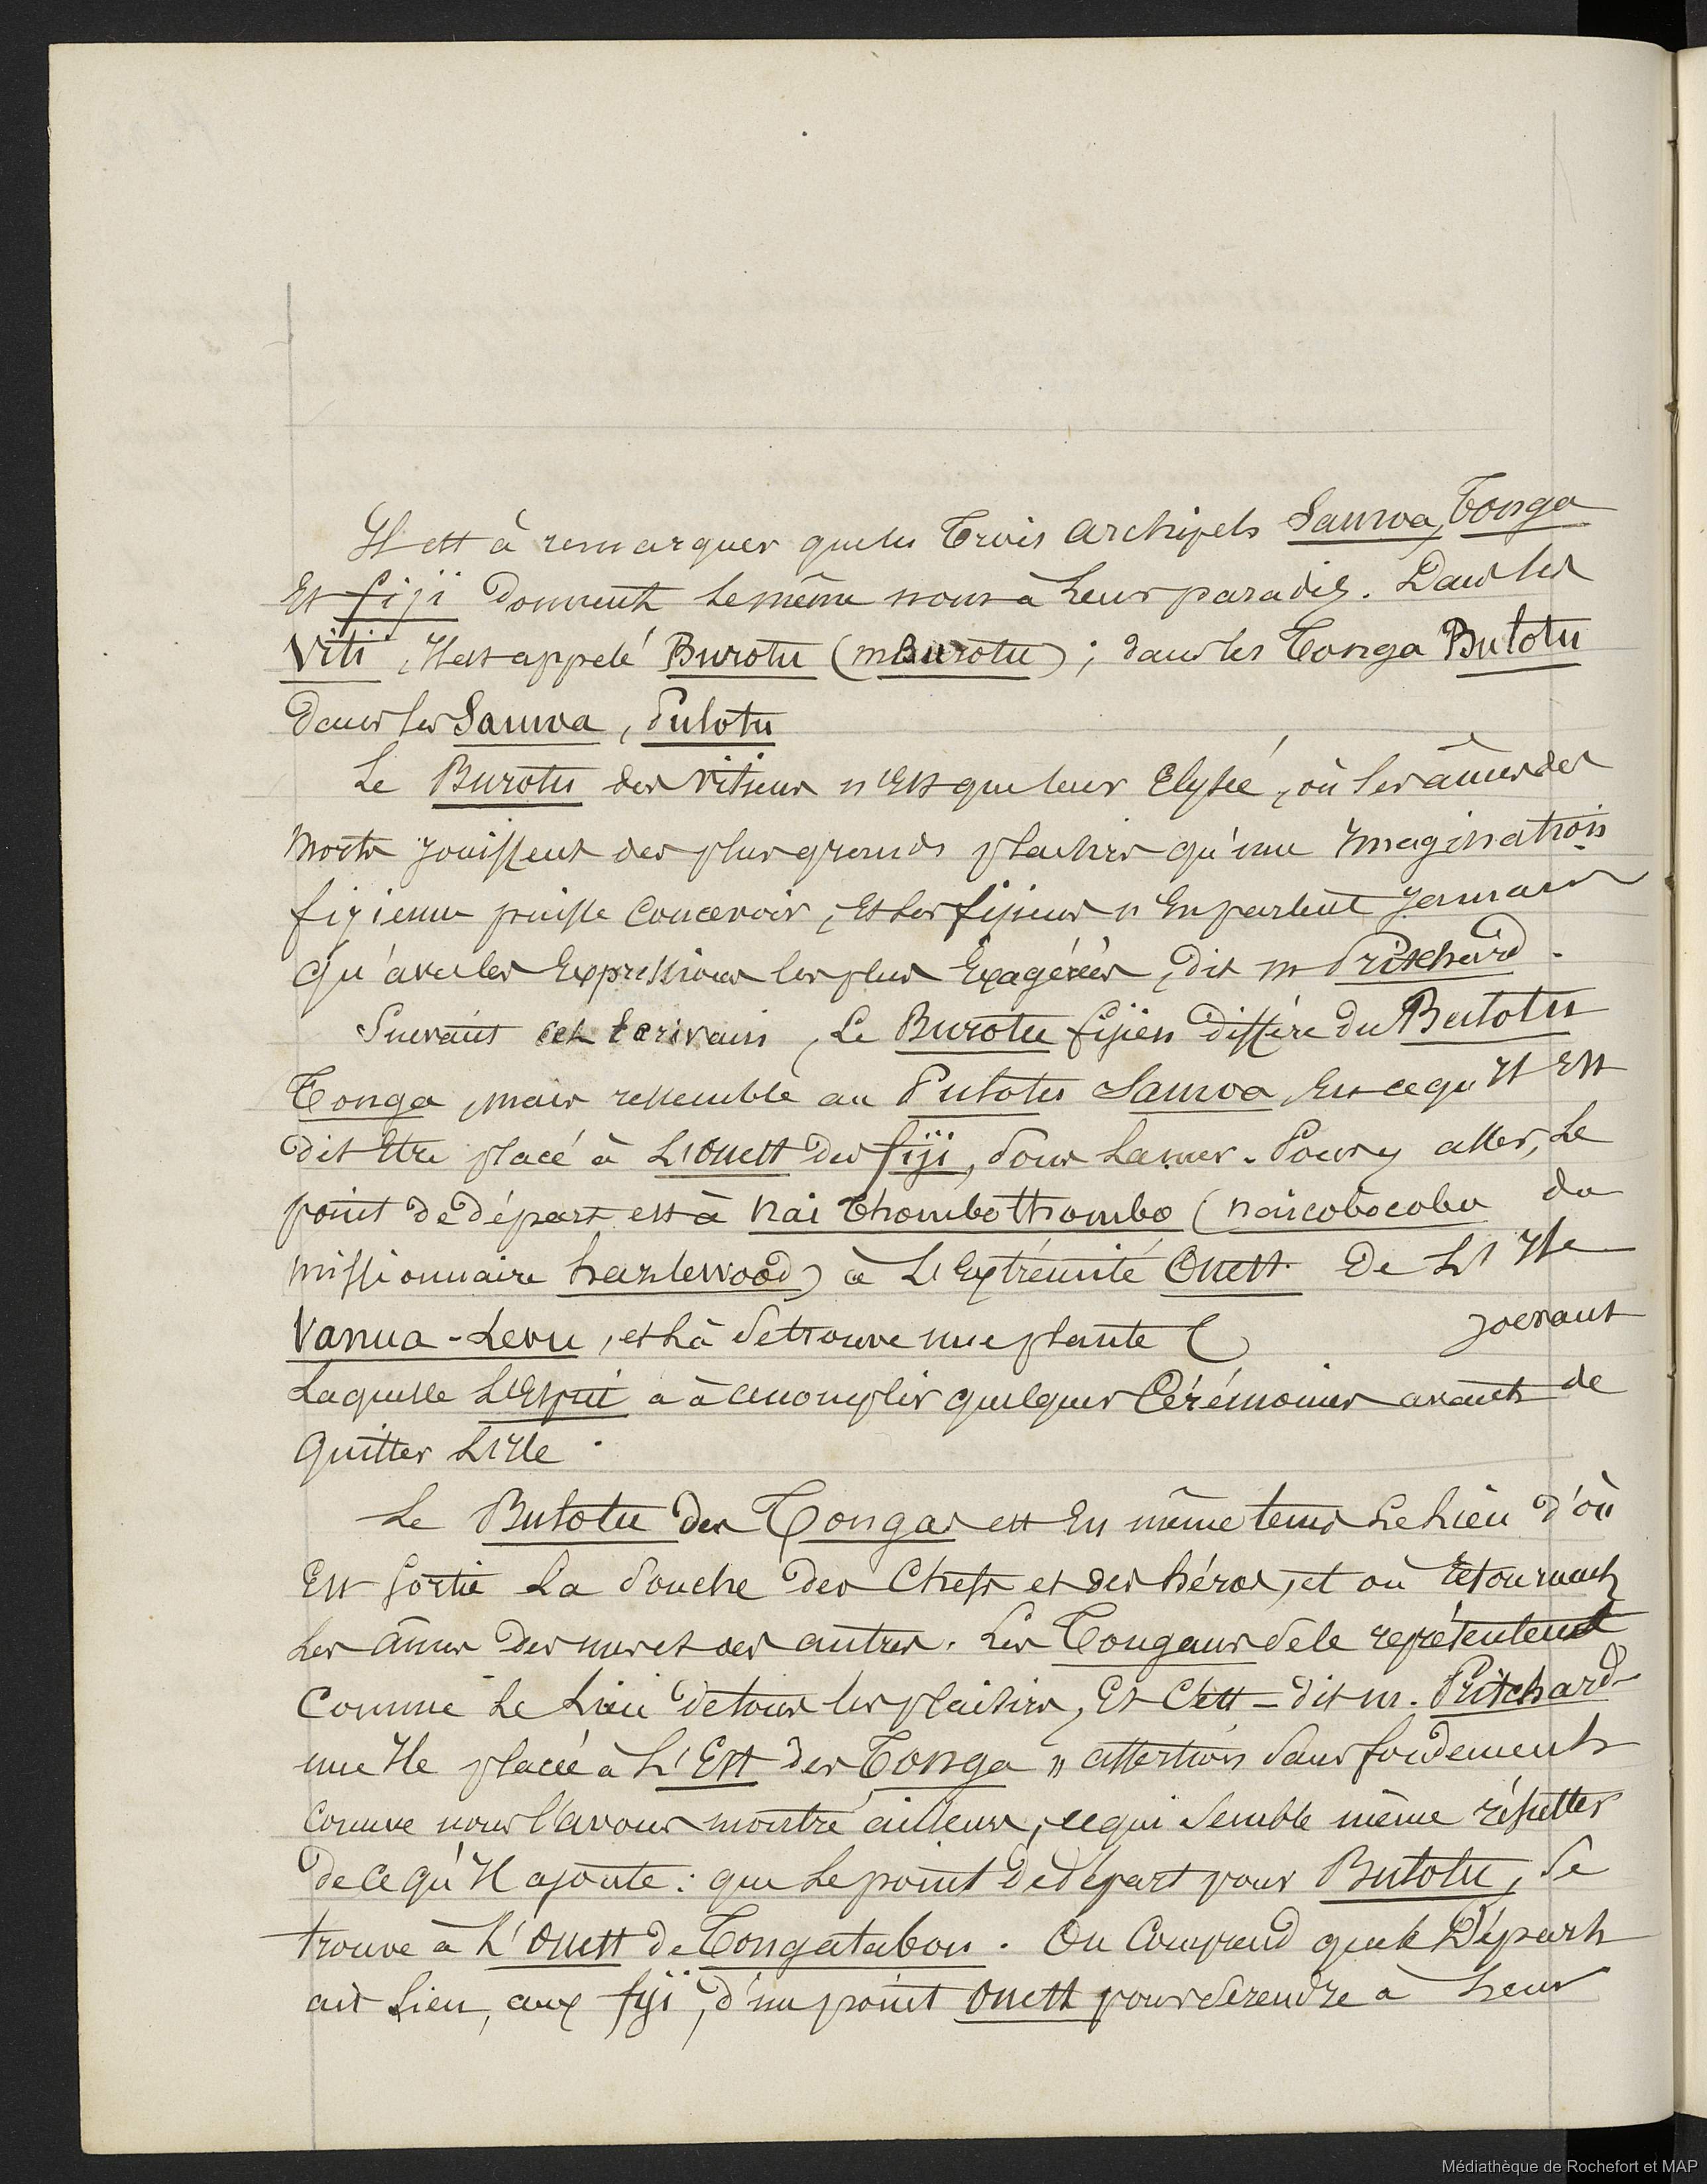 Il est à remarquer que les trois archipels Samoa, Tonga
et fiji donnent le même nom à leur paradis. Dans les
Viti, Il est appelé Burotu (mBurotu); dans les Tonga Bulotu
dans les Samoa, Pulotu
Le Burotu des Vitiens n'Est que leur Elysée, où les âmes des
morts jouissent des plus grands plaisirs qu'une Imagination
fijienne puisse concevoir, Et les fijiens n'En parlent jamais
qu'avec les Expressions les plus Exagérées, dit m Pritchard.
Suivant cet Ecrivain, Le Burotu fijien diffère du Bulotu
Tonga, mais ressemble au Pulotu Samoa, En ce qu'Il Est
dit Etre placé à L'Ouest des fiji, sous La mer. Pour y aller, Le
point de départ est à Nai Thombothombo (naicobocobo du
missionnaire hazlewood) à L'Extrémité Ouest De L'Ile
Vanua-Levu, et Là se trouve une plante (
Laquelle L'Esprit a à accomplir quelques Cérémonies avant de
quitter L'Ile.
Le Bulotu des Tongas est En même tems Le Lieu d'où
Est sortie La souche des Chefs et des héros, et où retournent
Les âmes des uns et des autres. Les Tongans se le représentent
Comme Le Lieu de tous les plaisirs, Et C'est - dit m. Pritchard
une Ile placée à L'Est des Tonga " assertion sans fondement
comme nous l'avons montré ailleurs, ce qui semble même résulter
de ce qu'Il ajoute : que Le point de départ pour Bulotu, se
trouve à L'Ouest de Tongatabou. On Comprend que le Départ
ait Lieu, aux fiji, d'un point Ouest pour se rendre à Leur
Médiathèque de Rochefort et MAP